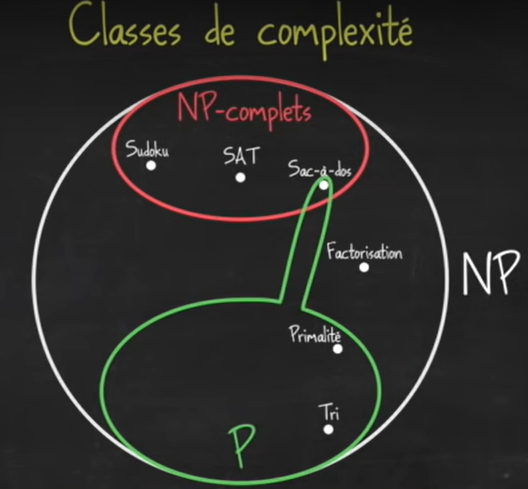 Classes de complexité
NP-complets
Sudoku
SAT
Sac-à-dos
Factorisation
NP
Primalité
Tri
P